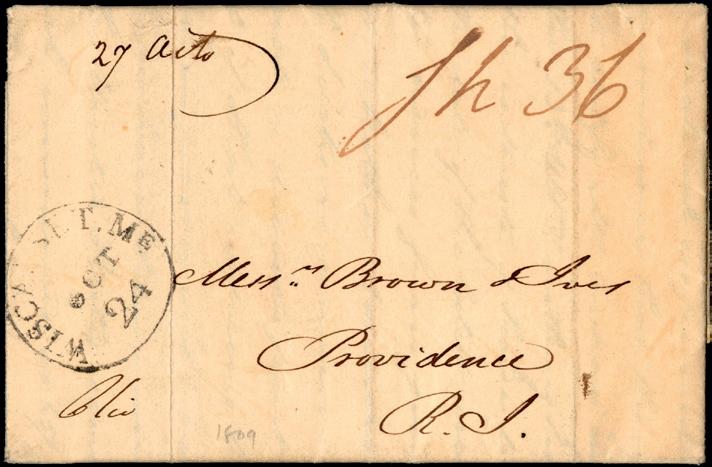 27 Octo
Sh 36
WISCASSET. ME
OCT
24
Messrs Brown & Ives
Providence
R. I.
1809